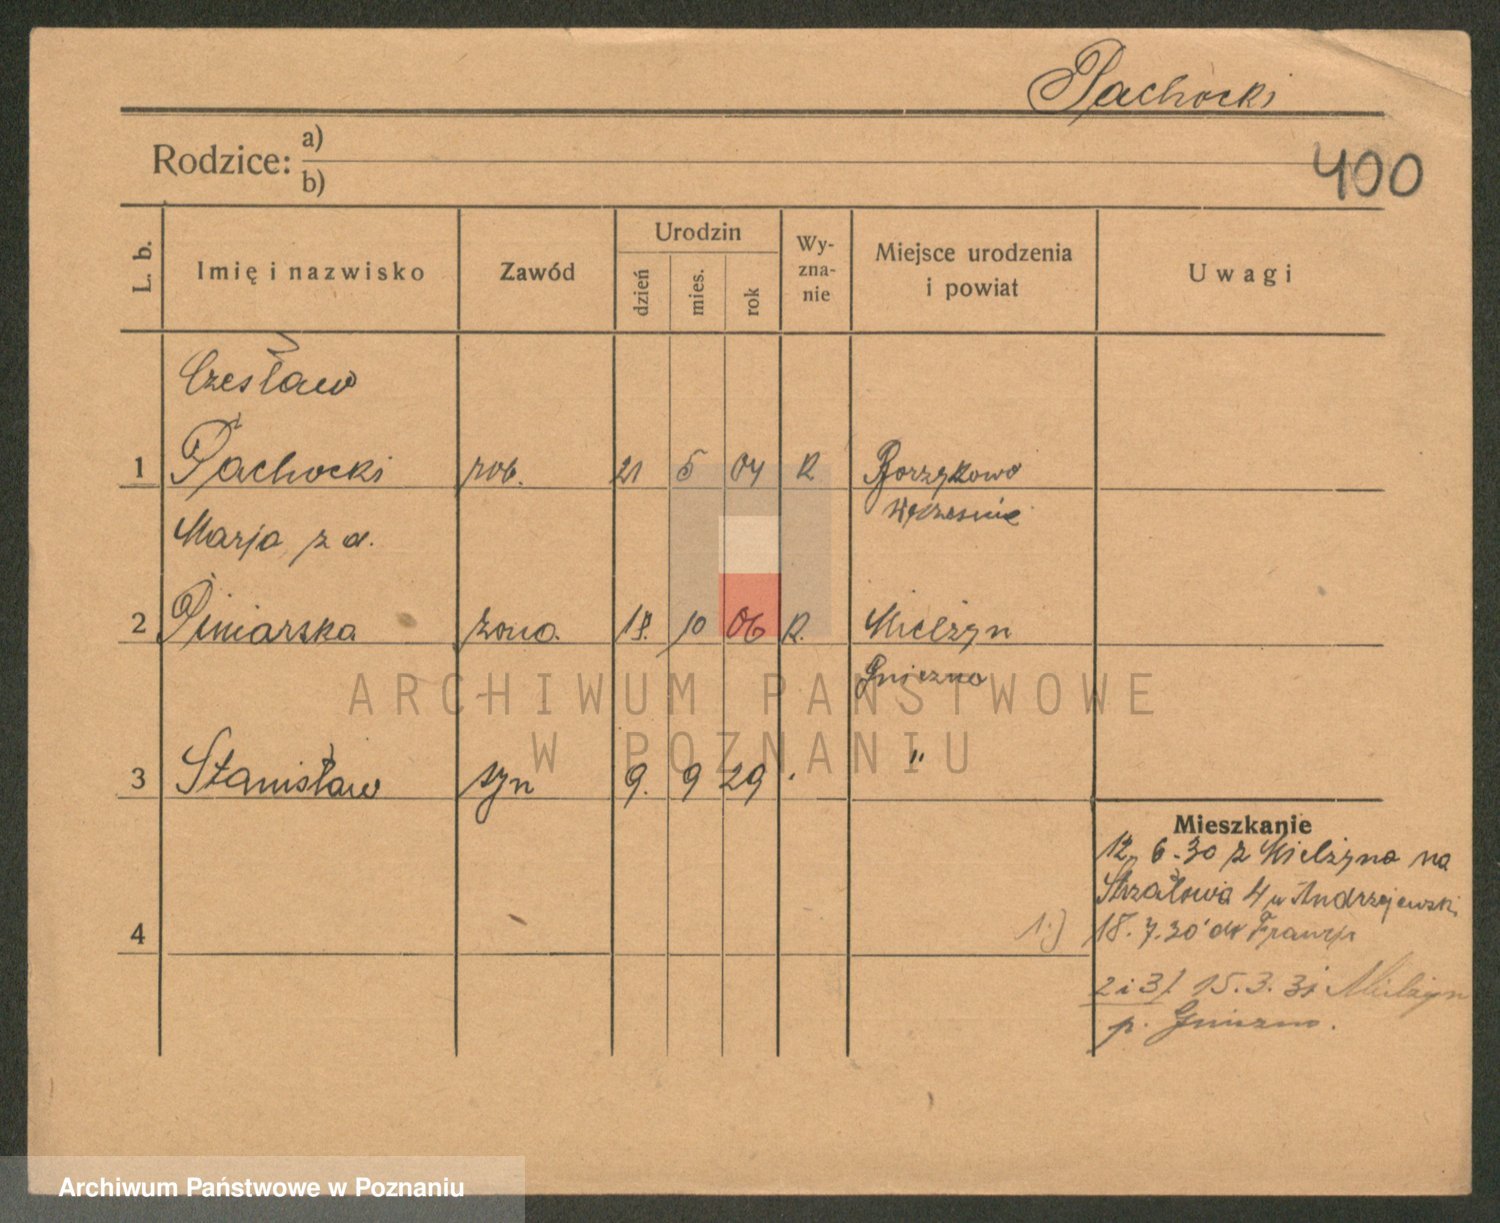 Pachocki
400
Rodzice: a)
b)
L. b. Imię i nazwisko Zawód Urodzin dzień mies. rok Wy-zna-nie Miejsce urodzenia i powiat Uwagi
Czesław
1 Pachocki rob. 21 5 04 R Borzykowo
Września
Marja z d.
2 Piniarska żona 18. 10 06 R. Kielżyn
Gniezno
ARCHIWUM PAŃSTWOWE
W POZNANIU
3 Stanisław syn 9. 9 29 "
Mieszkanie
12. 6.30 z Kielżyna na
Strzałowa 4 u Andrzejewski
4 1.) 18.7.30 do Francji
2 i 3/ 15.3.31
p. Gniezno.
Archiwum Państwowe w Poznaniu